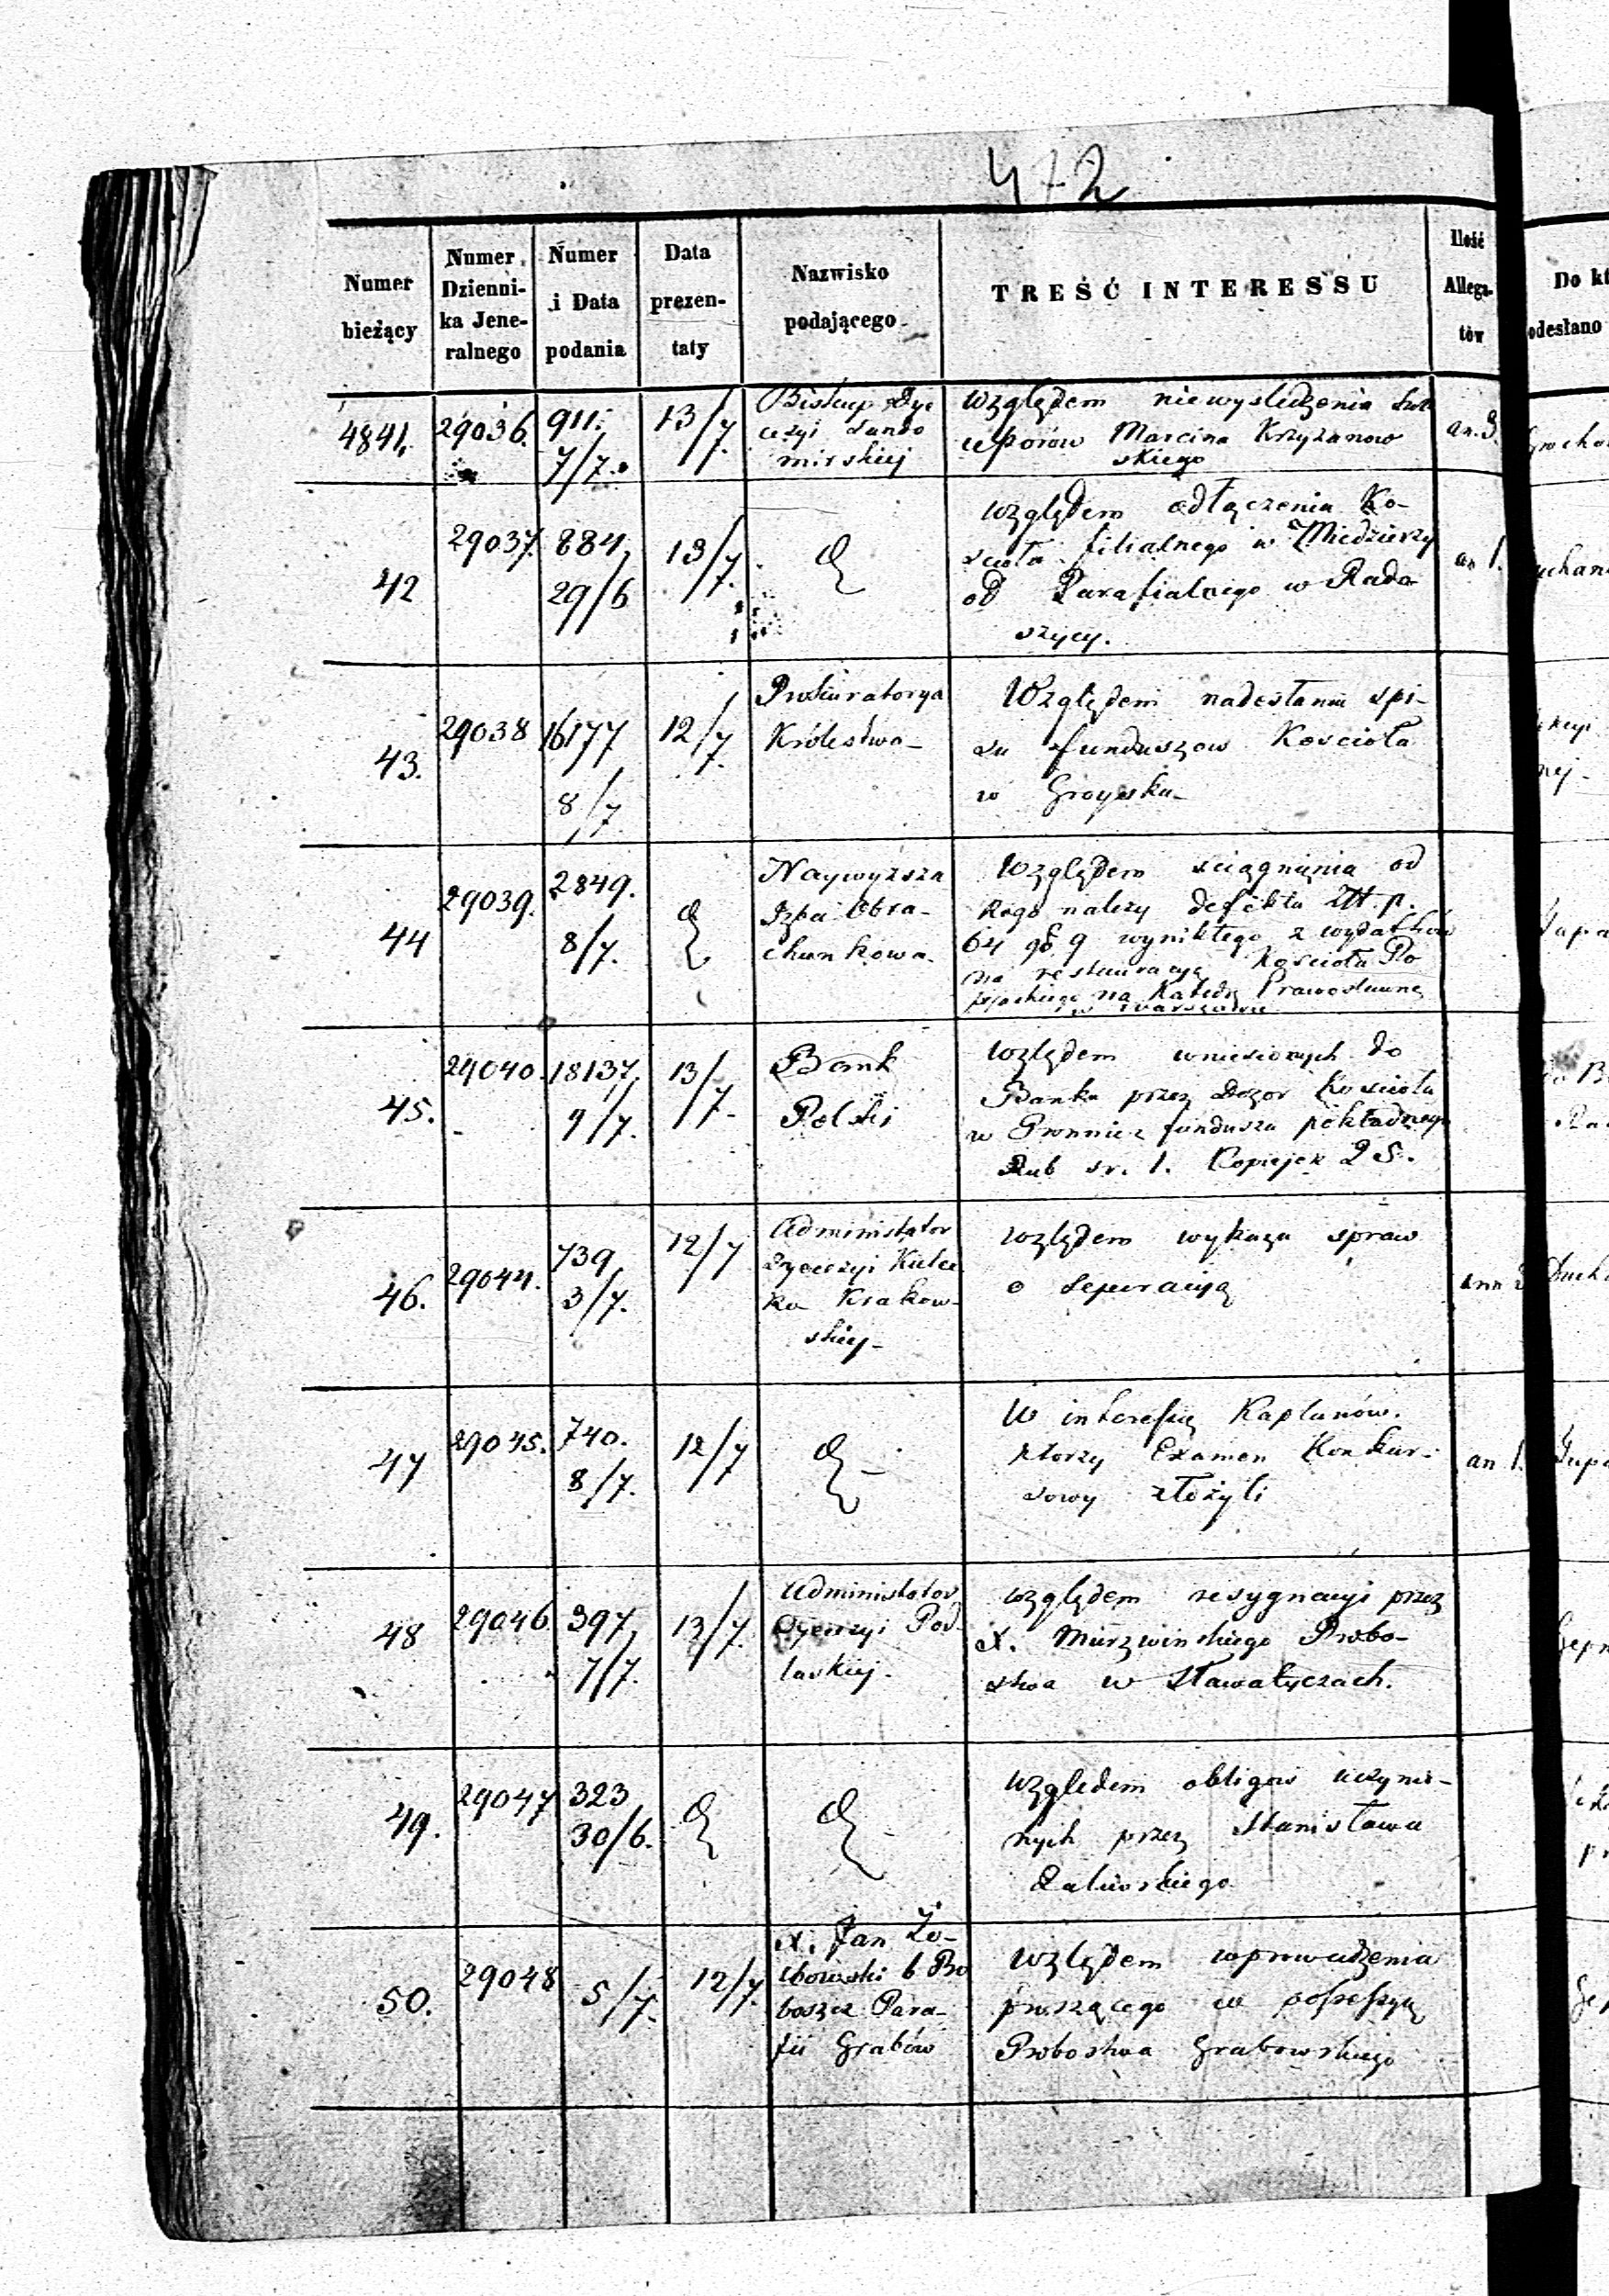 472
Numer bieżący
Numer Dzienni- ka Jene- ralnego
Numer i Data podania
Data prezen- taty
Nazwisko podającego
TREŚĆ INTERESSU
Ilość Allega- tów
Do kt
odesłano
4841.
29036.
911.
7/7.
13/7.
Biskup Dye
cezyi Sando
mirskiej
względem niewyśledzenia Suk
cessorów Marcina Krzyżanow
skiego
an. 3.
42
29037.
884,
29/6
13/7.
względem odłączenia Ko-
scioła filialnego w Miedzierzy
od Parafialnego w Rado
szycy.
an 1.
43.
29038
16177
8/7.
12/7.
Prokuratorya
Królestwa-
Względem nadesłania spi-
su funduszow Kościoła
w Groysku-
44
29039.
2849.
8/7.
Naywyższa
Izba Obra-
chunkowa.
Względem sciągnienia od
kogo należy defektu Zł. p.
64 g. 9 wynikłego z wydatków
na restauracyą Kościoła Po
pijarskiego na Katedrę Prawosławną
w Warszawie
45.
29040.
18137,
9/7.
13/7.
Bank
Polski
względem wniesionych do
Banku przez Dozor Kościoła
w funduszu pokładnego
Rub sr. 1. Kopiejek 25.
46.
29044.
739,
3/7.
12/7
Administrator
Dyecezyi Kielec
ko Krakow-
skiej-
względem wykazu spraw
o separacyą
47
29045.
740.
8/7.
12/7
W interessie Kapłanów.
którzy Examen Konkur-
sowy złożyli
an 1.
48
29046.
397,
7/7.
13/7.
Administrator
Dyecezyi Pod-
laskiej.
względem rezygnacyi przez
X. Mierzwińskiego Probo-
stwa w Sławatyczach.
49.
29047
323
30/6.
względem obligów uczynio-
nych przez Stanisława
Zaliwskiego
50.
29048
5/7.
12/7.
X. Jan
b Pro
boszcz Para-
fii Grabów
względem wprowadzenia
proszącego w possessyą
Probostwa Grabowskiego